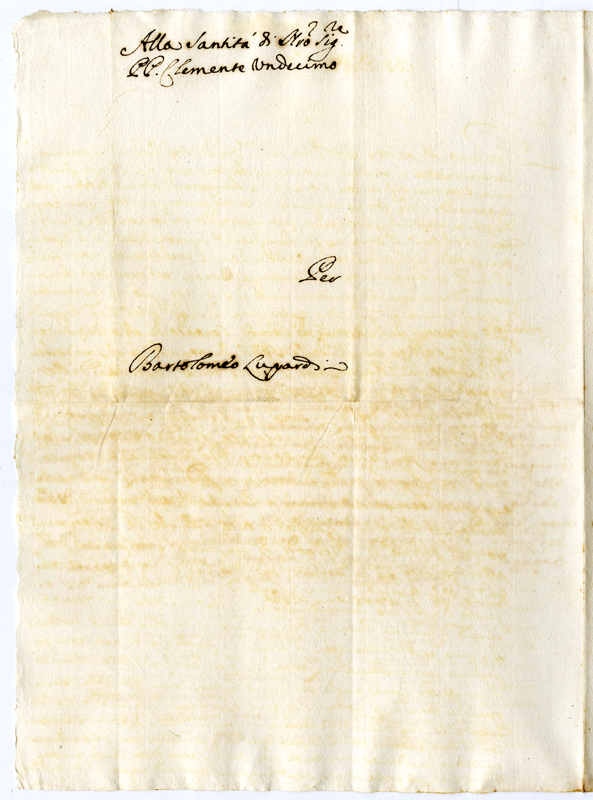 Alla Santità di Nrō Sig.re
PP. Clemente Undecimo
Per
Bartolomeo Lupardi